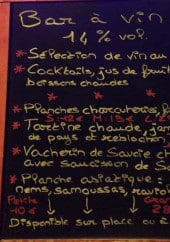 Bar à vin
14% vol.
* Sélection de vin au
* Cocktails, jus de fruit
boissons chaudes
* *
* Planches charcuterie, f
S:12€ M:18€ L:2
* Tartine chaude, jam
de pays de reblochon
* Vacherin de Savoie ch
avec saucisson de S
* Planche asiatique :
nems, samoussas, raviol
Petite Gran
10€ 28
Disponible sur place ou à